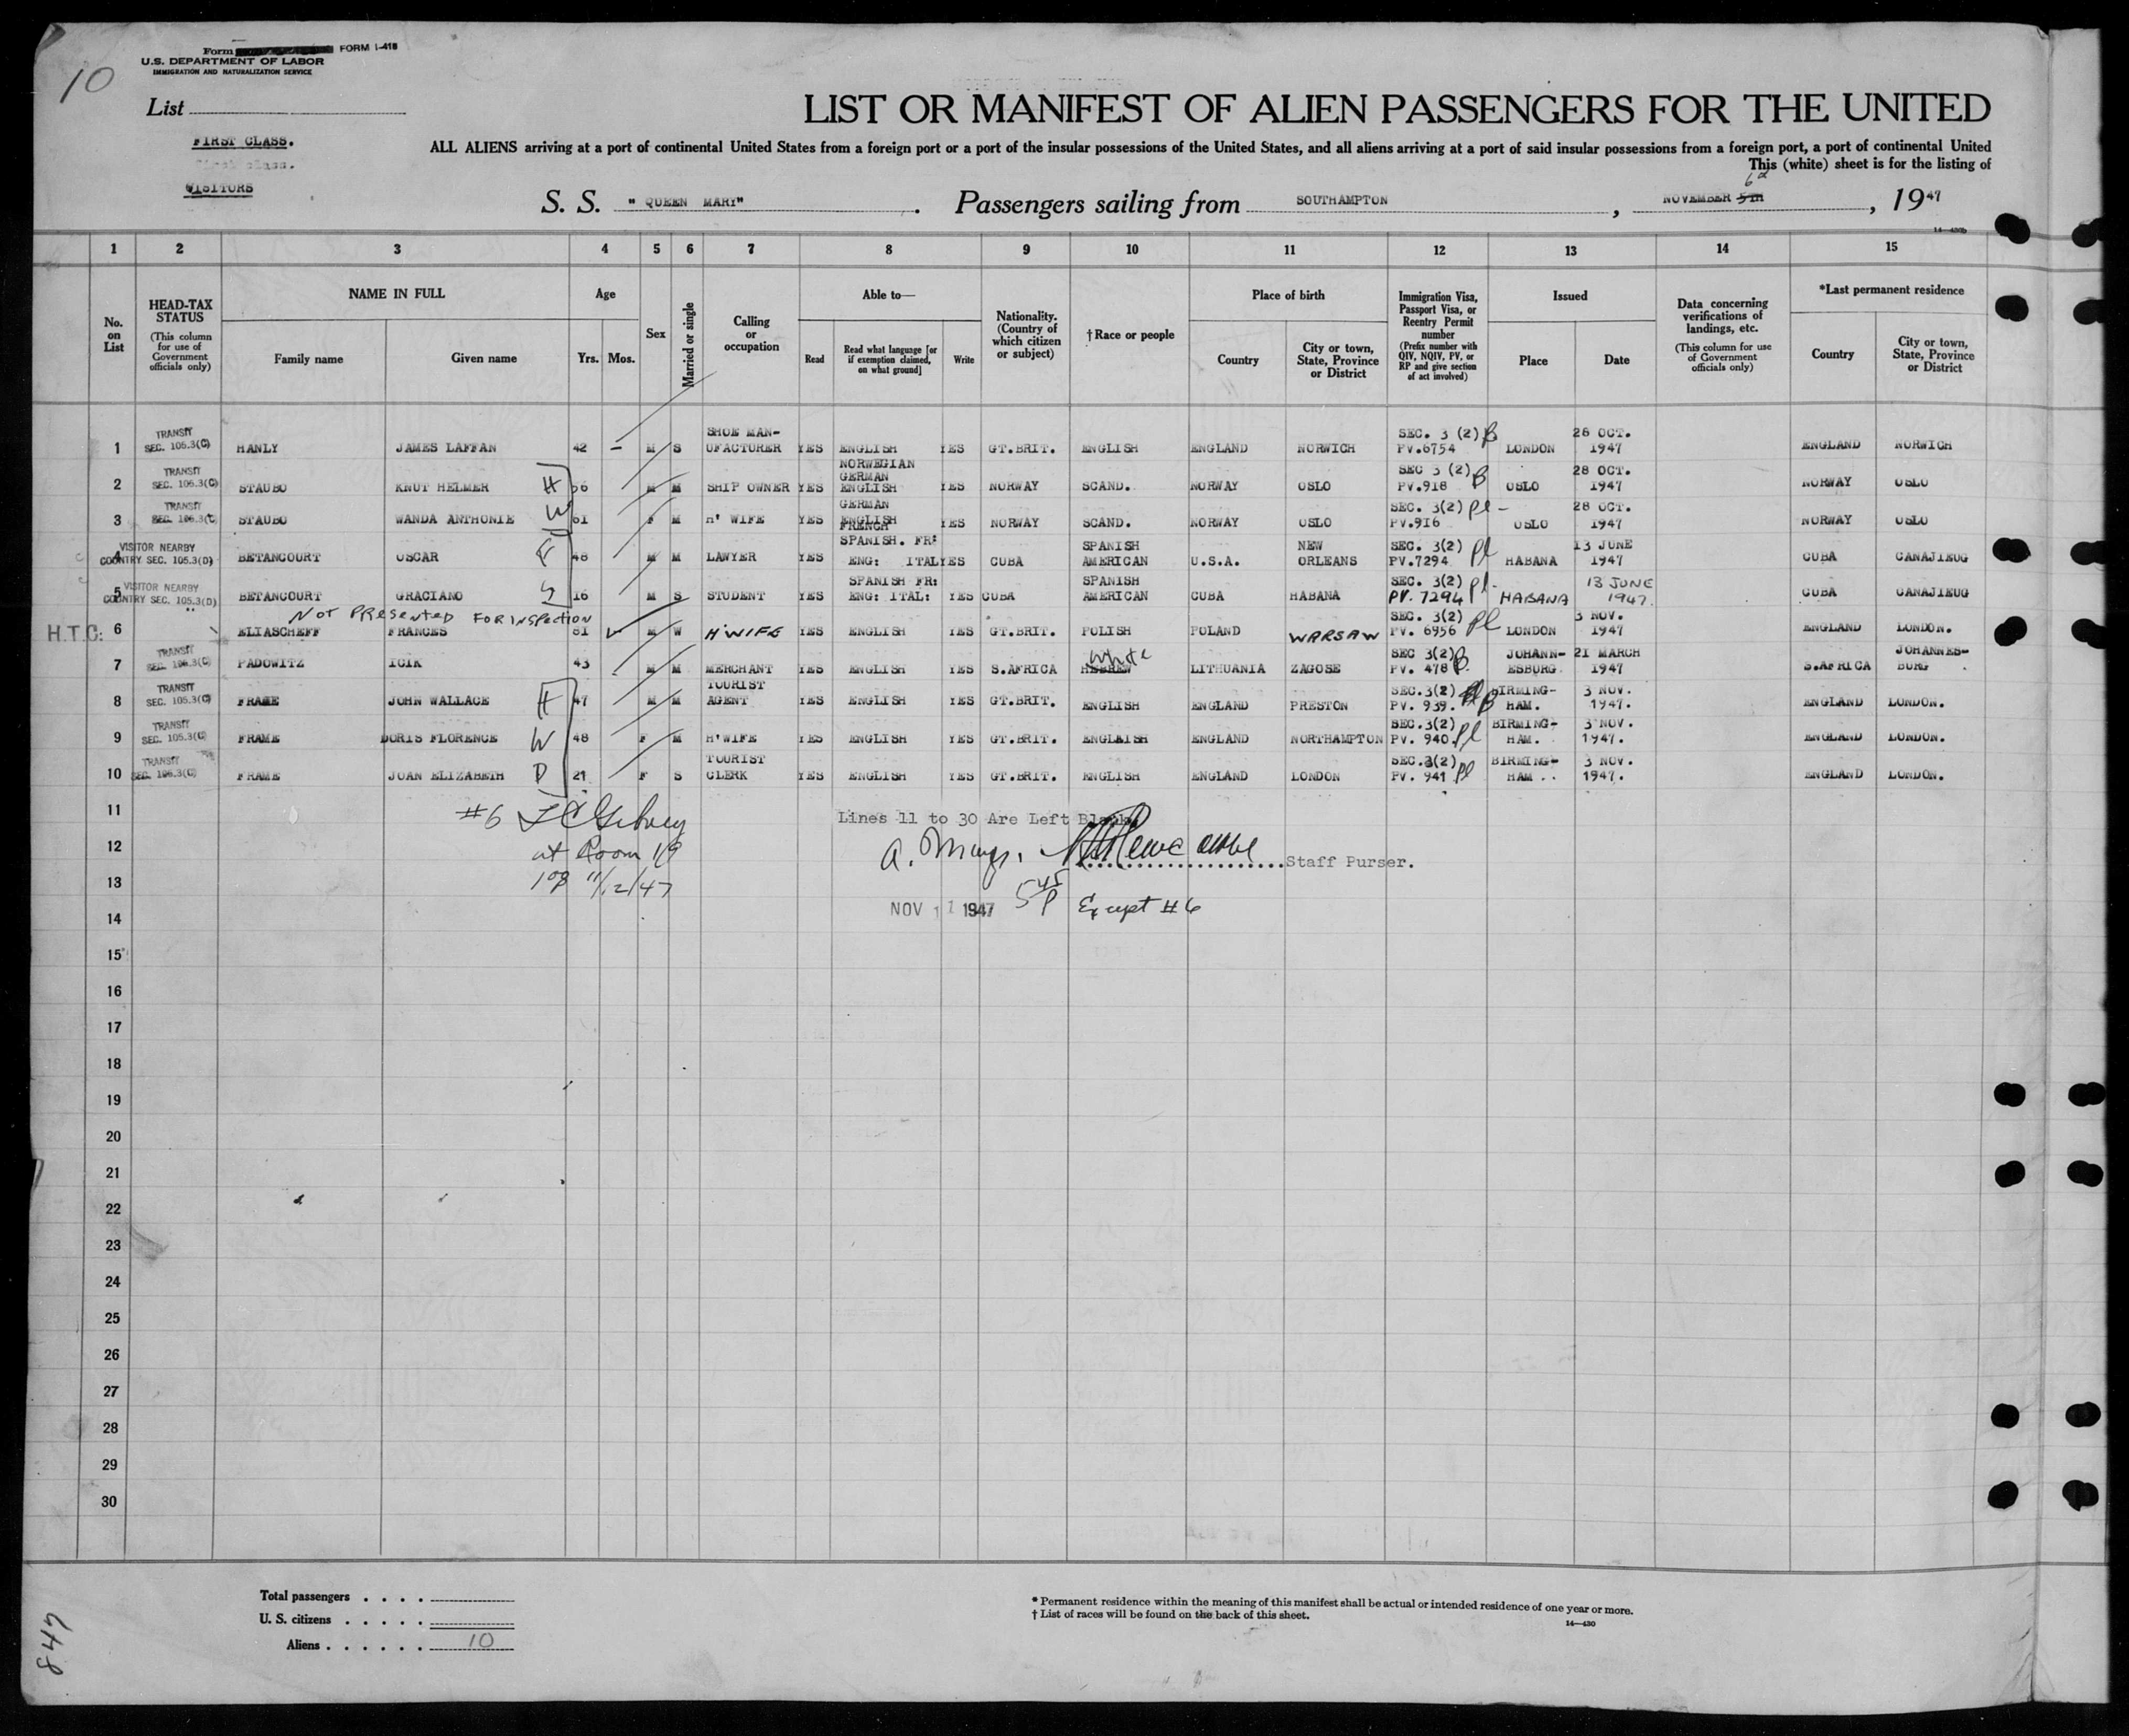 10
Form FORM I-418
U.S. DEPARTMENT OF LABOR
IMMIGRATION AND NATURALIZATION SERVICE
List
FIRST CLASS.
First class.
VISITORS
LIST OR MANIFEST OF ALIEN PASSENGERS FOR THE UNITED
ALL ALIENS arriving at a port of continental United States from a foreign port or a port of the insular possessions of the United States, and all aliens arriving at a port of said insular possessions from a foreign port, a port of continental United
This (white) sheet is for the listing of
S. S. " QUEEN MARY" . Passengers sailing from SOUTHAMPTON , NOVEMBER 5th 6th , 19 47
14—430b
1 2 3 4 5 6 7 8 9 10 11 12 13 14 15
No. on List
HEAD-TAX STATUS (This column for use of Government officials only)
NAME IN FULL Family name Given name
Age Yrs. Mos.
Sex
Married or single
Calling or occupation
Able to— Read Read what language [or if exemption claimed, on what ground] Write
Nationality. (Country of which citizen or subject)
†Race or people
Place of birth Country City or town, State, Province or District
Immigration Visa, Passport Visa, or Reentry Permit number (Prefix number with QIV, NQIV, PV, or RP and give section of act involved)
Issued Place Date
Data concerning verifications of landings, etc. (This column for use of Government officials only)
*Last permanent residence Country City or town, State, Province or District
1 TRANSIT SEC. 105.3(C) HANLY JAMES LAFFAN 42 — M S SHOE MAN-UFACTURER YES ENGLISH YES GT.BRIT. ENGLISH ENGLAND NORWICH SEC. 3 (2) PV.6754 LONDON 28 OCT. 1947 ENGLAND NORWICH
2 TRANSIT SEC. 105.3(C) STAUBO KNUT HELMER H 56 M M SHIP OWNER YES NORWEGIAN GERMAN ENGLISH YES NORWAY SCAND. NORWAY OSLO SEC 3 (2) PV.918 OSLO 28 OCT. 1947 NORWAY OSLO
3 TRANSIT SEC. 105.3(C) STAUBO WANDA ANTHONIE W 61 F M H' WIFE YES GERMAN ENGLISH FRENCH YES NORWAY SCAND. NORWAY OSLO SEC. 3(2) PV.916 OSLO 28 OCT. 1947 NORWAY OSLO
4 VISITOR NEARBY COUNTRY SEC. 105.3(D) BETANCOURT OSCAR F 48 M M LAWYER YES SPANISH. FR: ENG: ITAL YES CUBA SPANISH AMERICAN U.S.A. NEW ORLEANS SEC. 3(2) PV.7294 HABANA 13 JUNE 1947 CUBA CANAJIEUG
5 VISITOR NEARBY COUNTRY SEC. 105.3(D) BETANCOURT GRACIANO S 16 M S STUDENT YES SPANISH FR: ENG: ITAL: YES CUBA SPANISH AMERICAN CUBA HABANA SEC. 3(2) PV. 7294 HABANA 13 JUNE 1947. CUBA CANAJIEUG
NOT PRESENTED FOR INSPECTION
H.T.C: 6 ELIASCHEFF FRANCES 61 M W H'WIFE YES ENGLISH YES GT.BRIT. POLISH POLAND WARSAW SEC. 3(2) PV. 6956 LONDON 3 NOV. 1947 ENGLAND LONDON.
7 TRANSIT SEC. 105.3(C) PADOWITZ ICIK 43 M M MERCHANT YES ENGLISH YES S.AFRICA HEBREW White LITHUANIA ZAGOSE SEC 3(2) PV. 478 JOHANN-ESBURG 21 MARCH 1947 S.AFRICA JOHANNES-BURG .
8 TRANSIT SEC. 105.3(C) FRAME JOHN WALLACE H 47 M M TOURIST AGENT YES ENGLISH YES GT.BRIT. ENGLISH ENGLAND PRESTON SEC.3(2) PV. 939. BIRMING-HAM. 3 NOV. 1947. ENGLAND LONDON.
9 TRANSIT SEC. 105.3(C) FRAME DORIS FLORENCE W 48 F M H'WIFE YES ENGLISH YES GT.BRIT. ENGLISH ENGLAND NORTHAMPTON SEC.3(2) PV. 940. BIRMING-HAM. 3 NOV. 1947. ENGLAND LONDON.
10 TRANSIT SEC. 105.3(C) FRAME JOAN ELIZABETH D 21 F S TOURIST CLERK YES ENGLISH YES GT.BRIT. ENGLISH ENGLAND LONDON SEC.3(2) PV. 941 BIRMING-HAM .. 3 NOV. 1947. ENGLAND LONDON.
11 #6 Lines 11 to 30 Are Left Blank
12 at Room 119 Staff Purser.
13 11/12/47
14 NOV 11 1947 5 45 P Except #6
15
16
17
18
19
20
21
22
23
24
25
26
27
28
29
30
Total passengers . . . .
U. S. citizens . . . . .
Aliens . . . . . . 10
* Permanent residence within the meaning of this manifest shall be actual or intended residence of one year or more.
† List of races will be found on the back of this sheet.
14—430
847